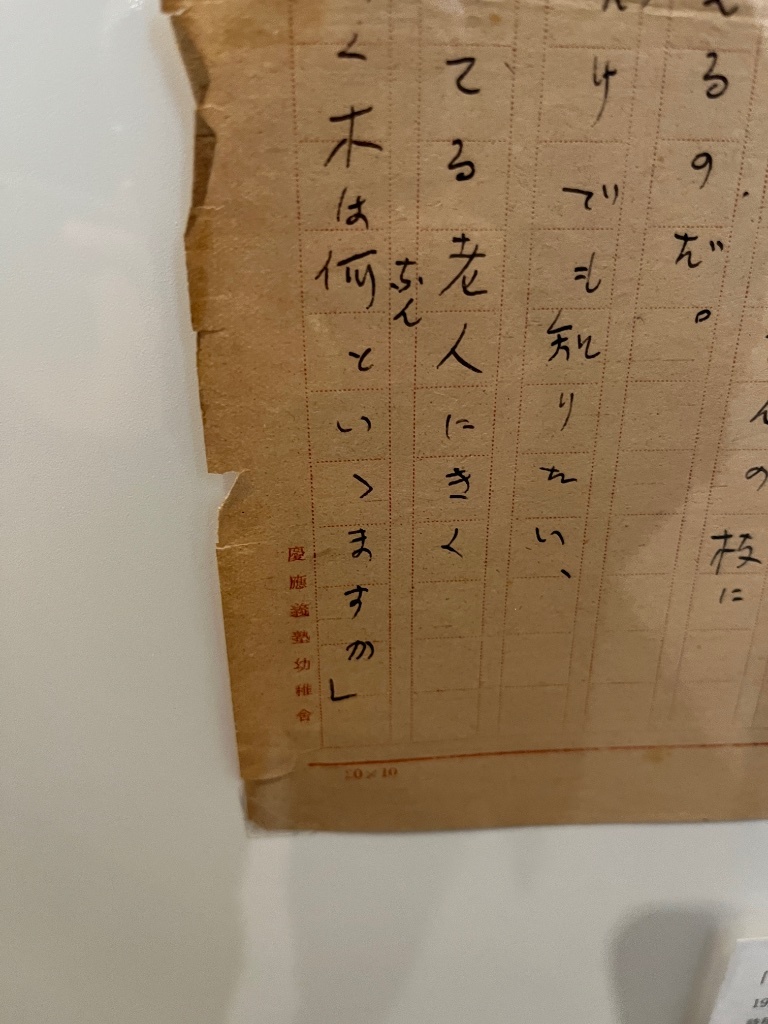 の枝に
るのだ。
けでも知りたい、
てる老人にきく
なん
く木は何といゝますか」
慶應義塾幼稚舎
20×10
19